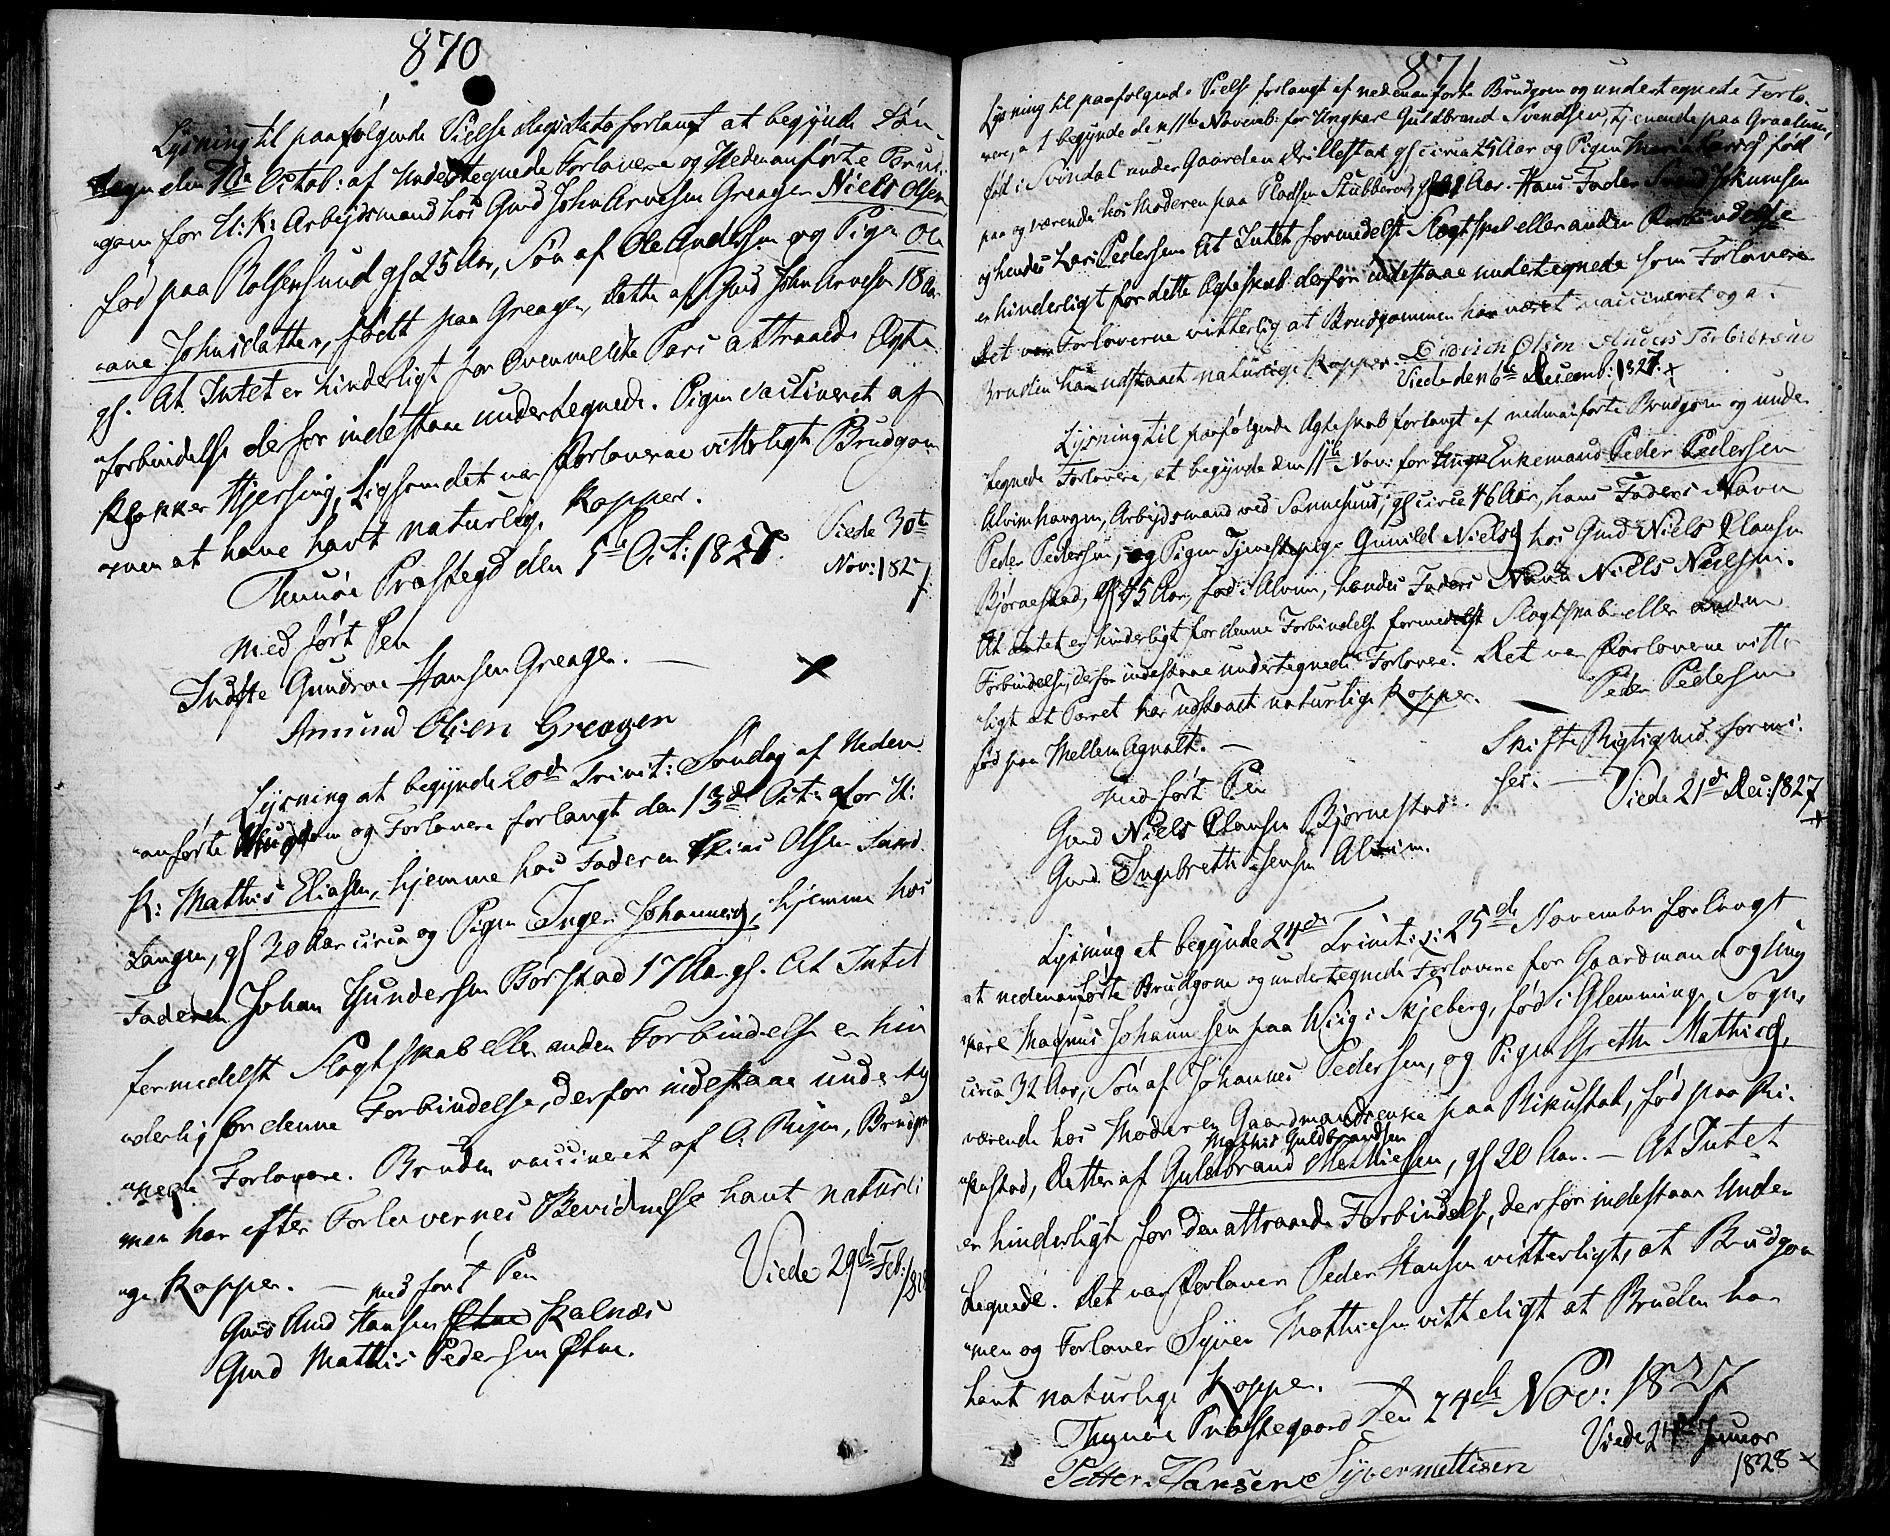 870
Lysning til paafølgende Vielse forlangt at begynde Søn-
dagen den 7de Octob: af Undertegnede Forlovere og Nedenanførte Brud-
gom for U: K: Arbeidsmand hos Gmd John Arvesen Greager Niels Olsen
fød paa Rolsøesund gl 25 Aar, Søn af Ole Andersen og Pigen Ole
ane Johnsdatter, født paa Greager, Datter af Gmd John Arvesen 18 Aar
gl. At Intet er hinderligt for Ovenmeldte Pars attraaede Ægte
forbindelse derfor indestaae undertegnede. Pigen vaccineret af
Klokker Hjersing, Ligesom det var Forloverne vitterligt Brudgom
men at have havt naturlige Kopper.
Thunøe Præstegd den 5te Oct: 1827. Viede 30te
Nov: 1827
med ført Pen
Tufte Gundroe Hansen Greager. —
Amund Olsen Greager
Lysning at begynde 20de Trinit: Søndag af Neden
anførte Brudgom og Forlovere forlangt den 13de Oct: for U:
K: Mathis Eliasen, hjemme hos Faderen Elias Olsen Sand
tangen, gl 30 Aar circa og Pigen Inger Johannesd, hjemme hos
Faderen Johan Gundersen Borstad 17 Aar gl. At Intet
formedelst Slægtskab eller anden Forbindelse er hin
derlig for denne Forbindelse, derfor indestaae underteg
nede Forlovere. Bruden vaccineret af C: Mejer, Brudgom
men har efter Forlovernes Bevidnelse havt naturli
ge Kopper. — med ført Pen Viede 29de Feb: 1828
Gmd And Hansen Kalnæs
Gmd Mathis Pedersen Elne.
871
Lysning til paafølgende Vielse forlangt af nedenanførte Brudgom og undertegnede Forlo-
vere, at begynde den 11te Novemb: for Ungkarl Guldbrand Svendsen, tjenende paa Graalum,
fød i Svindal under Gaarden Drillestak gl circa 25 Aar og Pigen Maria Larsd fød
paa og værende hos Moderen paa Pladsen Stubberød gl Aar. Hans Fader Svend Johannesen
og hendes Lars Pedersen At Intet formedelst Slægtskab eller anden Forbindelse
er hinderligt for dette Ægteskab derfor indestaae undertegnede som Forlovere
Det var Forloverne vitterlig at Brudgommen har været vaccineret og at
Bruden har udstaaet naturlige Kopper. Didrich Olsen. Anders Torbiørsen
Viede den 6te Decemb: 1827.
Lysning til paafølgende Ægteskab forlangt af nedenanførte Brudgom og under
tegnede Forlovere, at begynde den 11te Nov: for Enkemand Peder Pedersen
Alvimhaugen, Arbeidsmand ved Sannesund, gl circa 46 Aar, hans Faders Navn
Peder Pedersen, og Pigen Tjenestepige Gunild Nielsd hos Gmd Niels Clausen
Bjørnestad, gl 45 Aar, fød i Alvim, hendes Faders Navn Niels Nielsen.
At Intet er hinderligt for denne Forbindelse formedelst Slægtskab eller anden
Forbindelse, derfor indestaae undertegnede Forlovere. Det var Forloverne vitter
ligt at Parret har udstaaet naturlige Kopper. — Peder Pedersen
fød paa Mellem Agnalt. — Skifte Rigtighed forevi-
med ført Pen ses. — Viede 21de Dec: 1827
Gmd Niels Clausen Bjørnestad.
Gmd. Ingebreth Jensen Alvim.
Lysning at begynde 24de Trinit: D: 25de November forlangt
at nedenanførte Brudgom og undertegnede Forlovere for Gaardmand og Ung
karl Magnus Johannesen paa Wiig i Skjeberg, fød i Glemminge Sogn,
circa 32 Aar, Søn af Johannes Pedersen, og Pigen Grethe Mathisd,
værende hos Moderen Gaardmandsenke paa Rikustad, fød paa Ri-
Mathis Guldbrandsen
kustad, Datter af Guldbrand Mathiesen, gl 20 Aar. — At Intet
er hinderligt for den attraaede Forbindelse, derfor indestaae Under
tegnede. Det var Forlover Peder Hansen vitterligt, at Brudgom
men og Forlover Syver Mathiesen vitterligt at Bruden har
havt naturlige Kopper. —
Thunøe Præstegaard den 24de Nov: 1827
Viede 24de Januar
Petter Hansen Syver Mettisen 1828